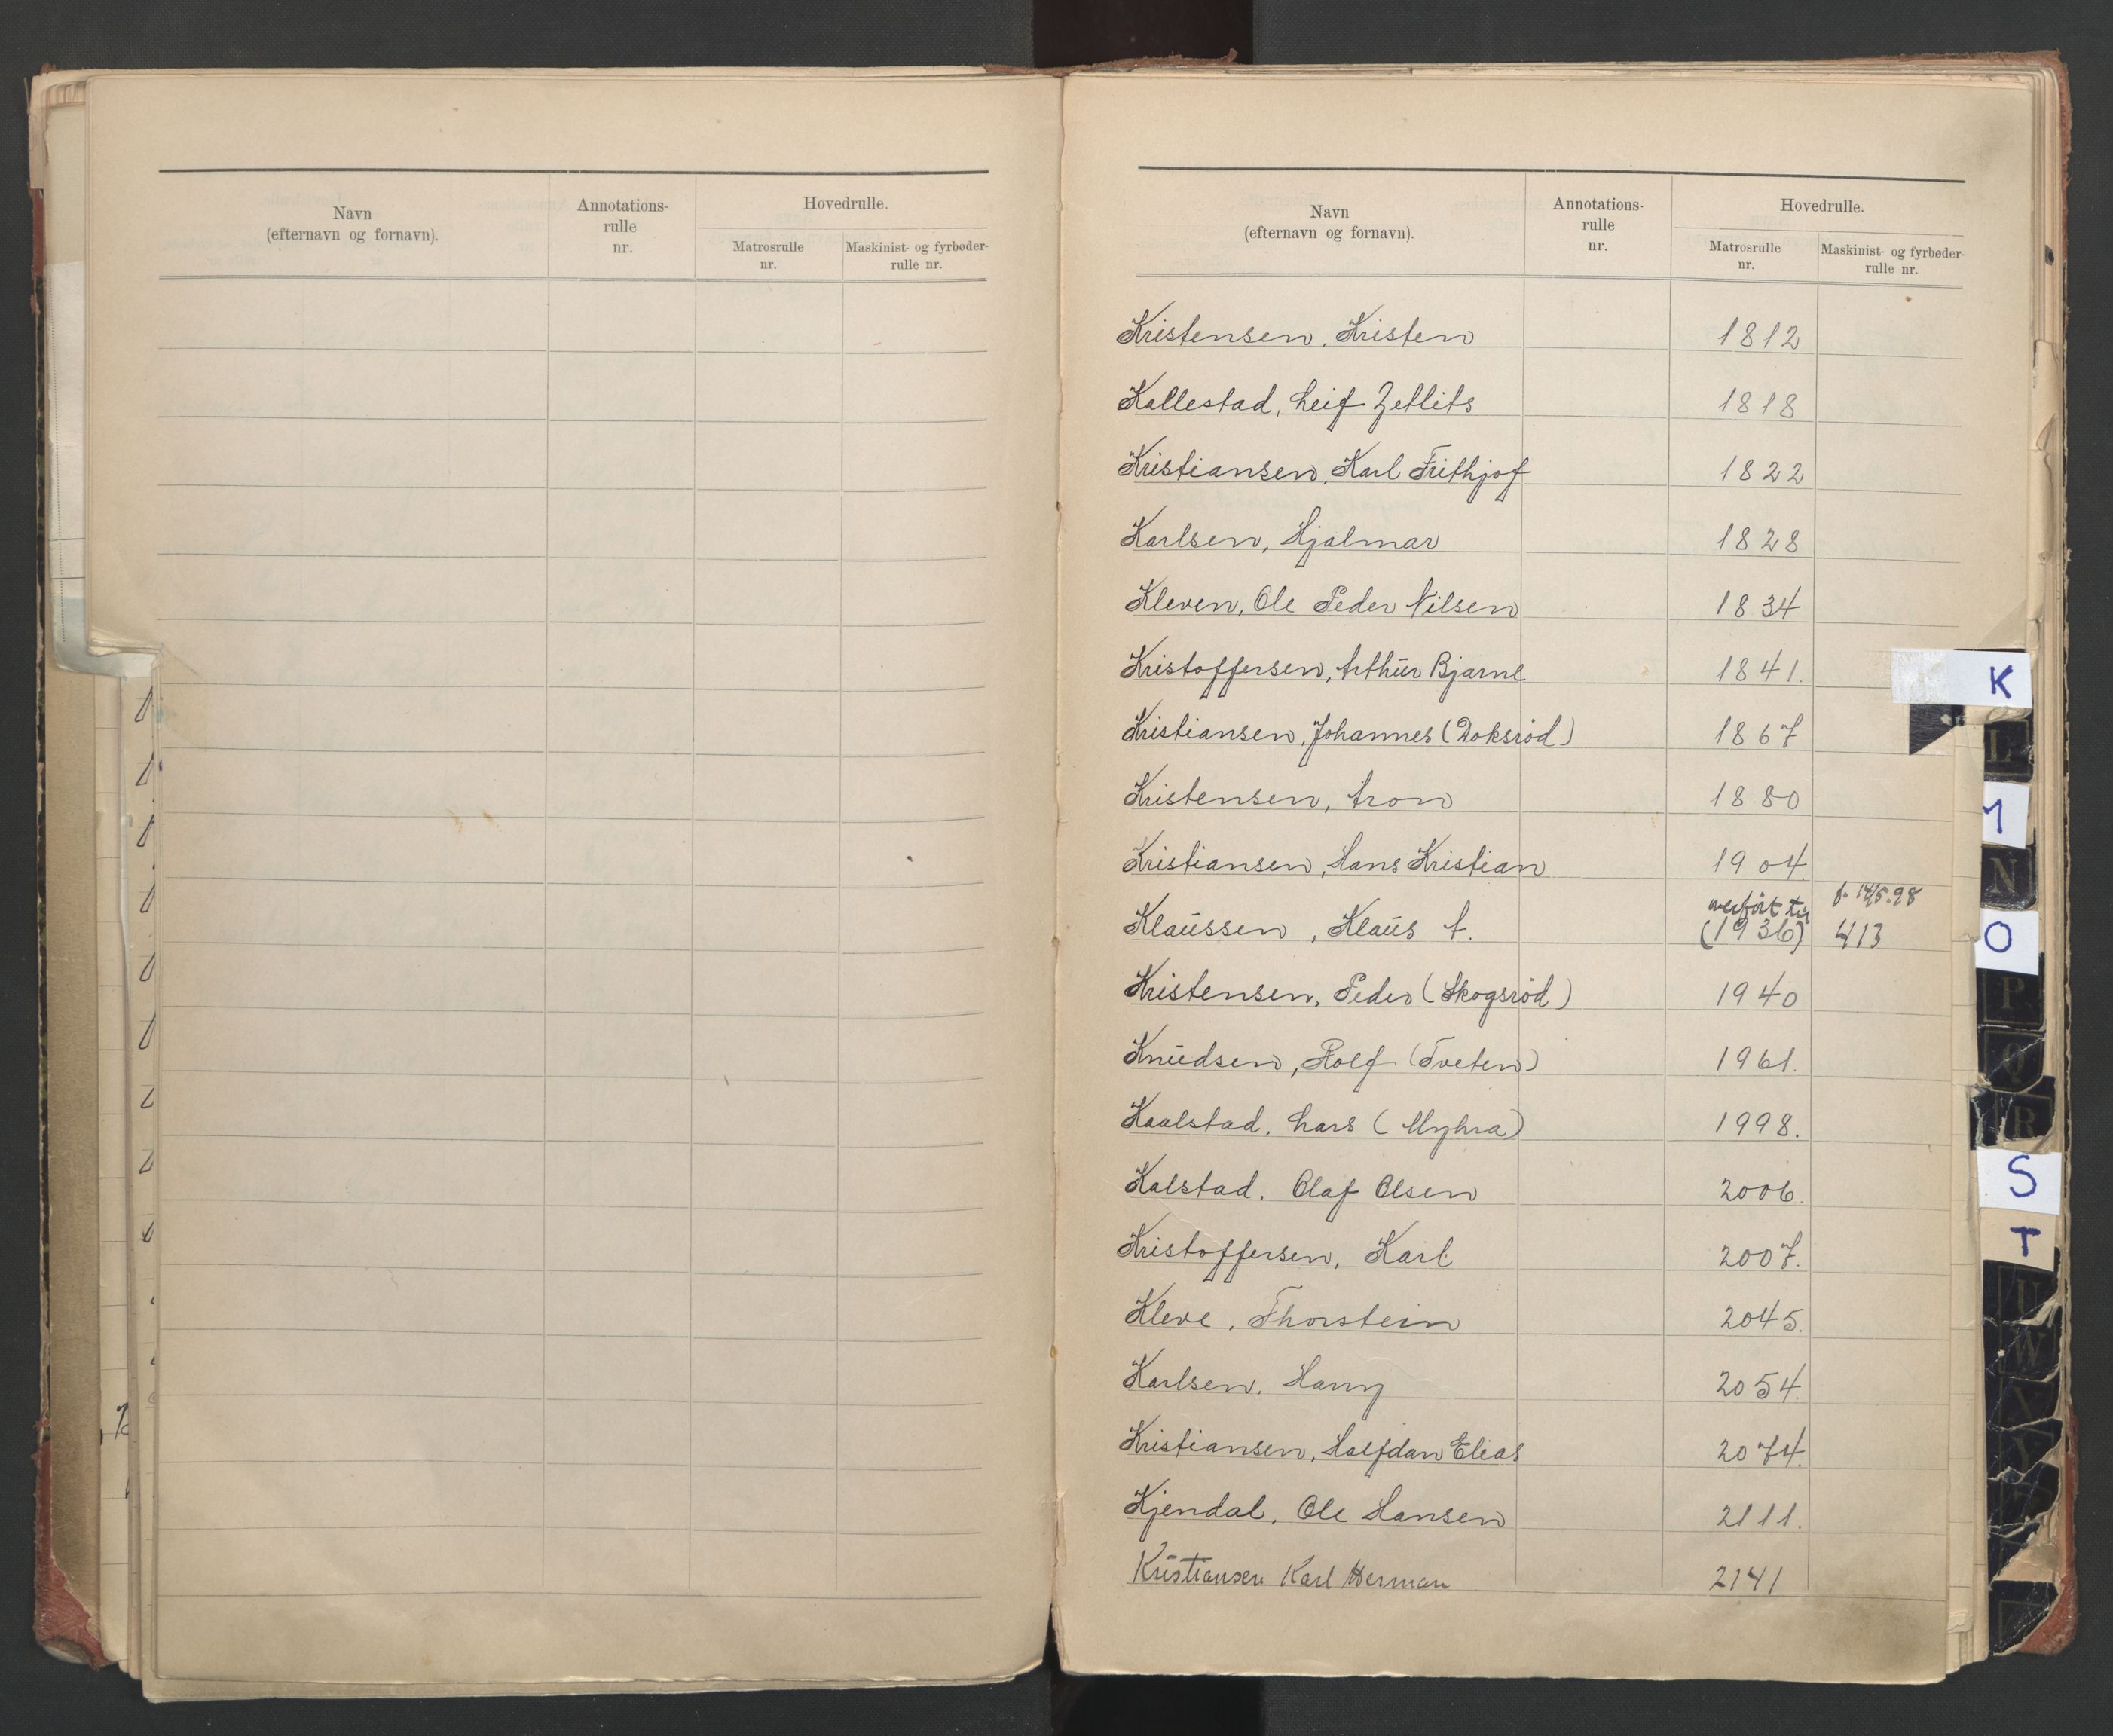 Navn
(efternavn og fornavn).
Annotations-
rulle
nr.
Hovedrulle.
Matrosrulle
nr.
Maskinist- og fyrbøder-
rulle nr.
Navn
(efternavn og fornavn).
Annotations-
rulle
nr.
Hovedrulle.
Matrosrulle
nr.
Maskinist- og fyrbøder-
rulle nr.
Kristensen, Kristen 1812
Kallestad, Leif Zetlits 1818
Kristiansen, Karl Frithjof 1822
Karlsen, Hjalmar 1828
Kleven, Ole Peder Nilsen 1834
Kristoffersen, Arthur Bjarne 1841.
Kristiansen, Johannes (Doksrød) 1867
Kristensen, Aron 1880
Kristiansen, Hans Kristian 1904.
overført til f. 14/5.98
Klaussen, Klaus A. (1936) 413
Kristensen, Peder (Skogsrød) 1940
Knudsen, Rolf (Tveten) 1961.
Kaalstad, Lars (Myhra) 1998.
Kalstad, Olaf Olsen 2006.
Kristoffersen, Karl 2007.
Kleve, Thorstein 2045.
Karlsen, Harry 2054.
Kristiansen, Halfdan Elias 2074.
Kjendal, Ole Hansen 2111.
Kristiansen Karl Herman 2141
K
L
M
N
O
P
Q
R
S
T
U
W
X
Y